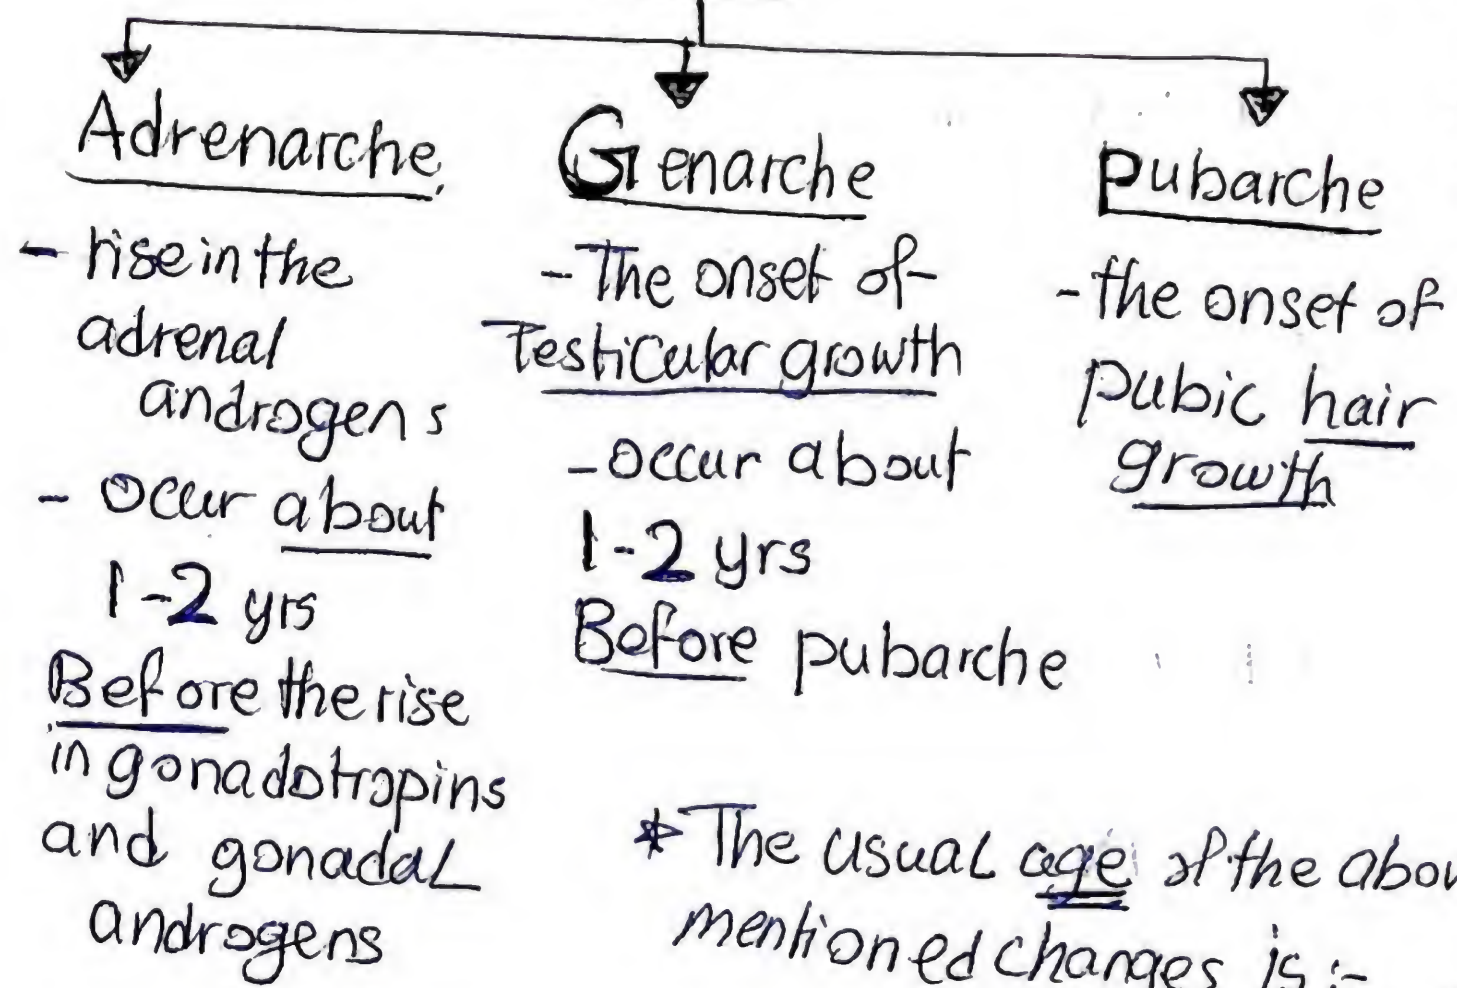 Adrenarche
- rise in the
adrenal
androgens
- occur about
1-2 yrs
Before the rise
in gonadotropins
and gonadal
androgens
Genarche
- The onset of
Testicular growth
- occur about
1-2 yrs
Before pubarche
Pubarche
- the onset of
pubic hair
growth
* The usual age of the abov
mentioned changes is :-